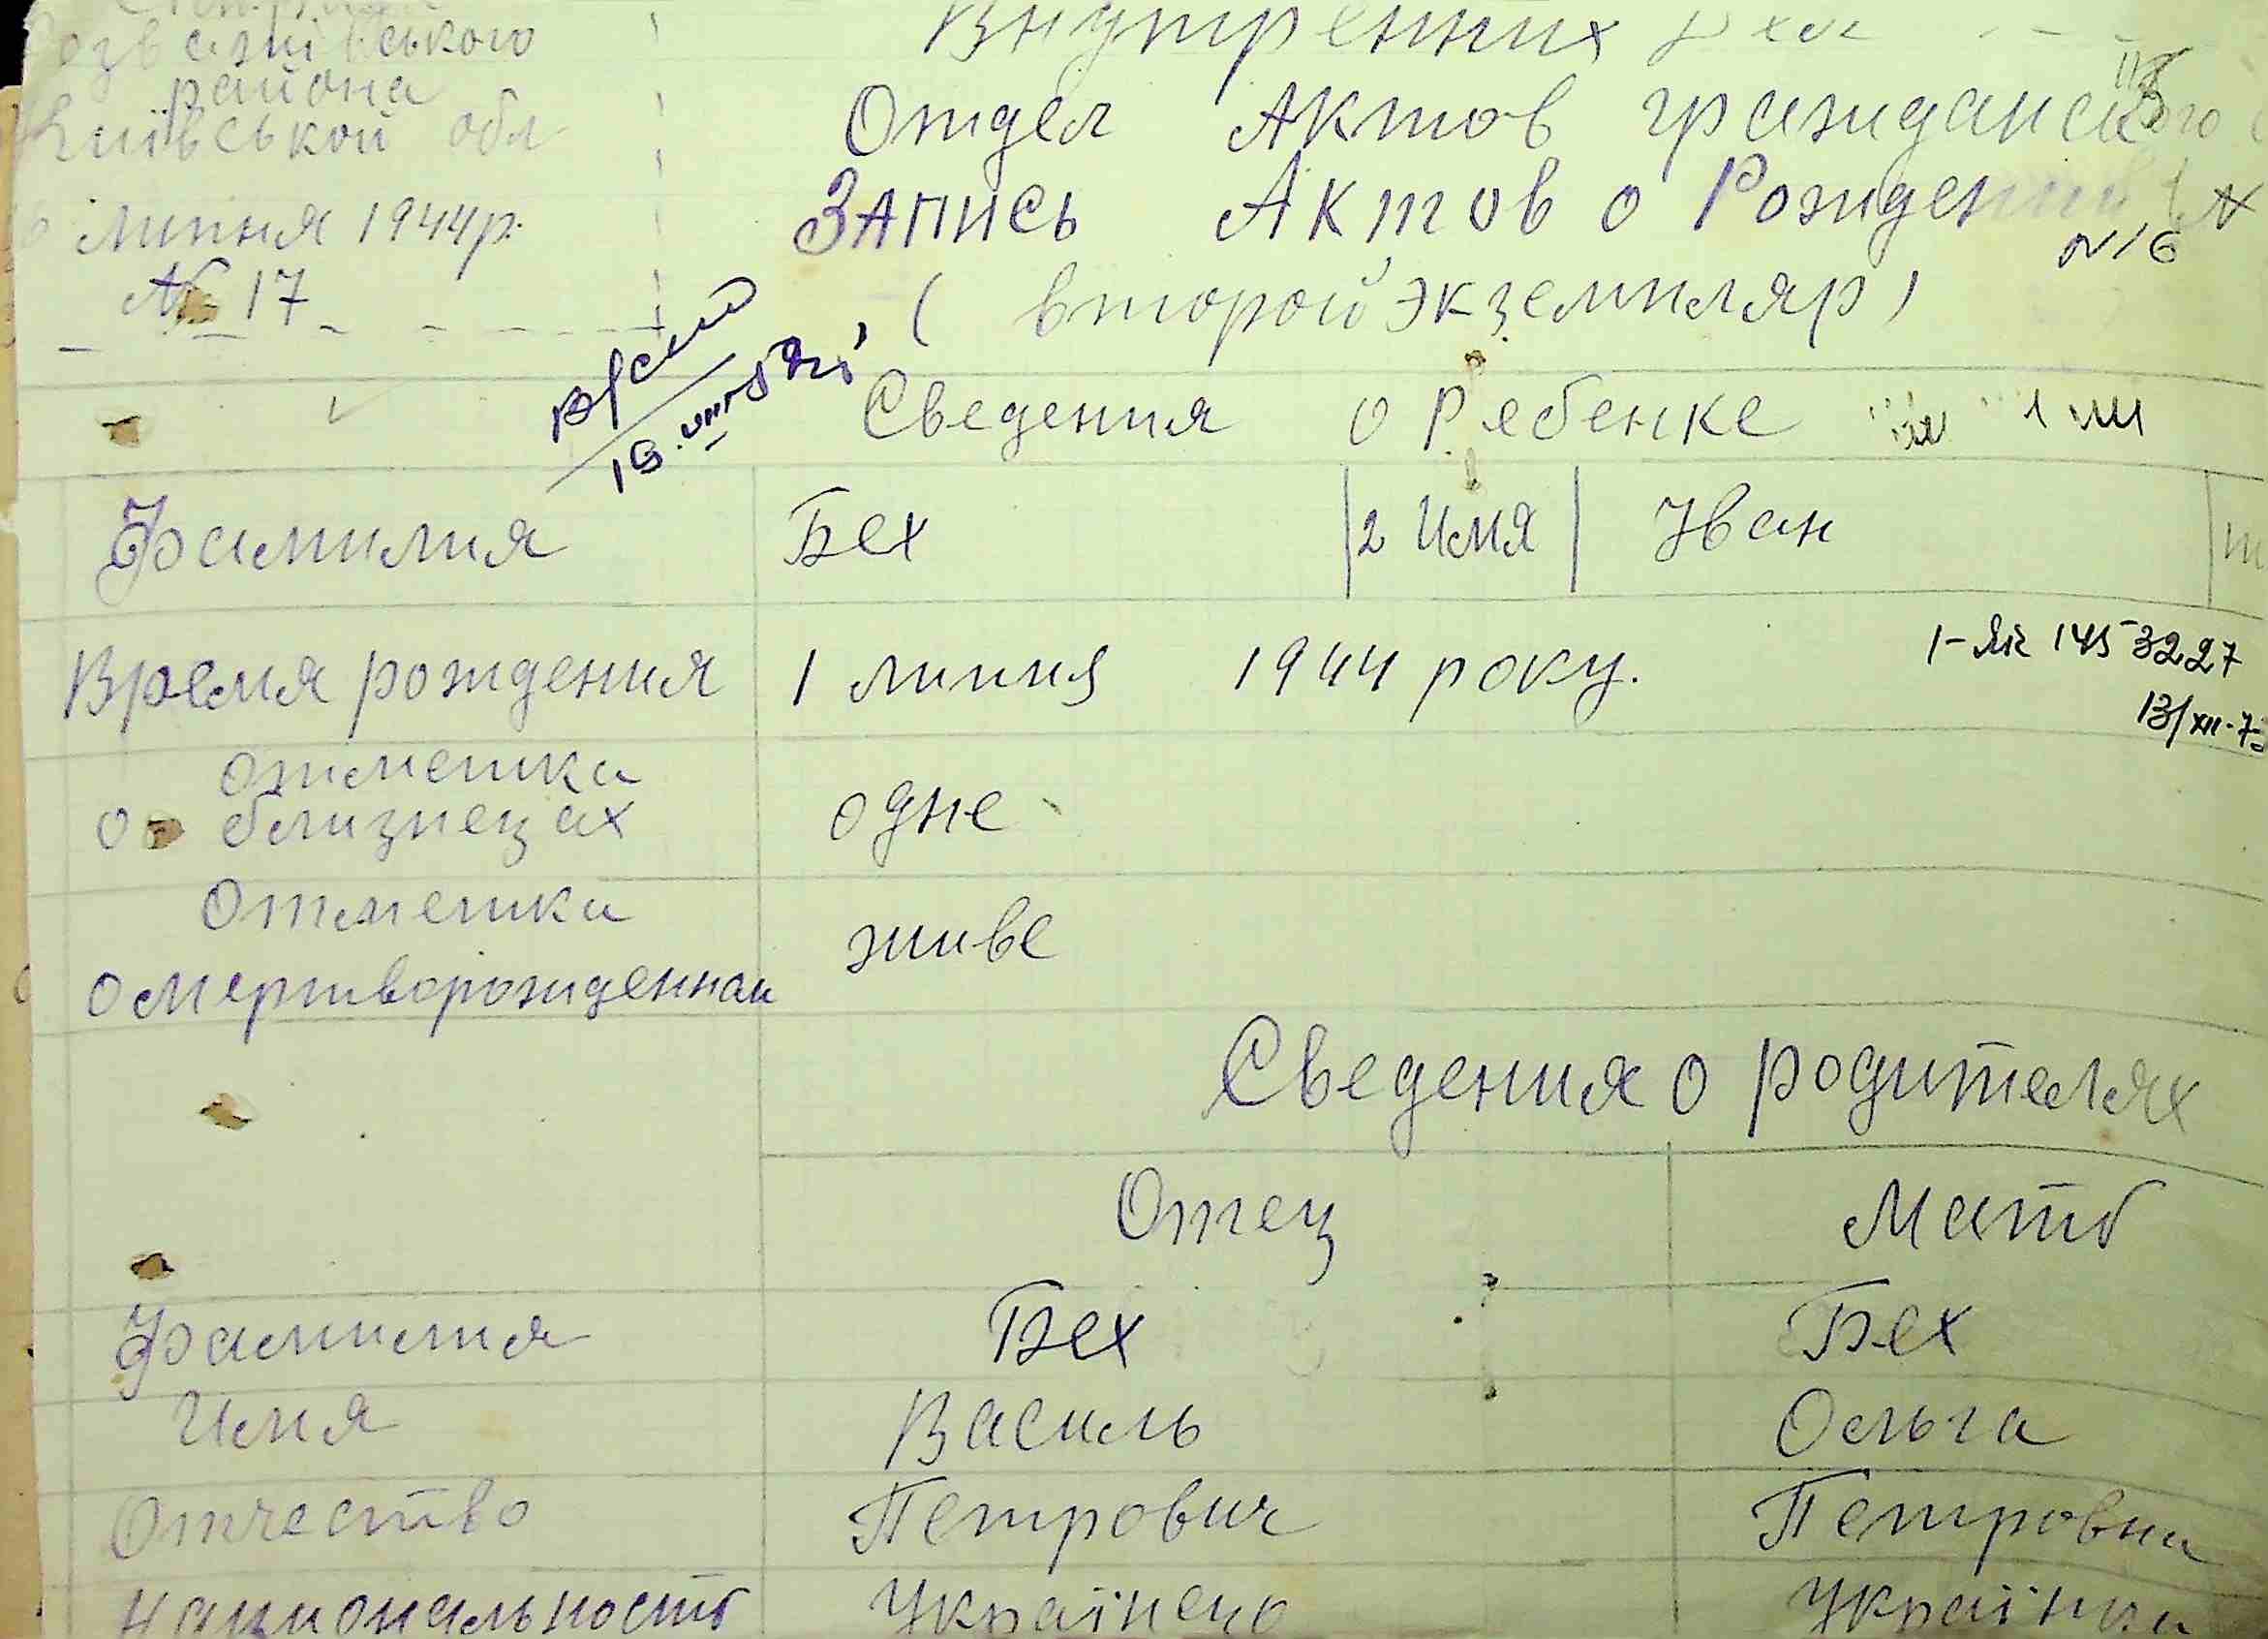 району
Київської обл
липня 1944р.
№ 17
Внутренних Дел
Отдел Актов гражданского
Запись Актов о Рождении
N 16
( второй экземпляр )
Сведения о Ребенке
Фамилия Бех 2 Имя Иван
Время рождения 1 липня 1944 року.
3227
отметка
о близнецах одне
Отметка
о мертворожденном живе
Сведения о родителях
Отец Мать
Фамилия Бех Бех
Имя Василь Ольга
Отчество Петрович Петровна
Национальность Українець Українка